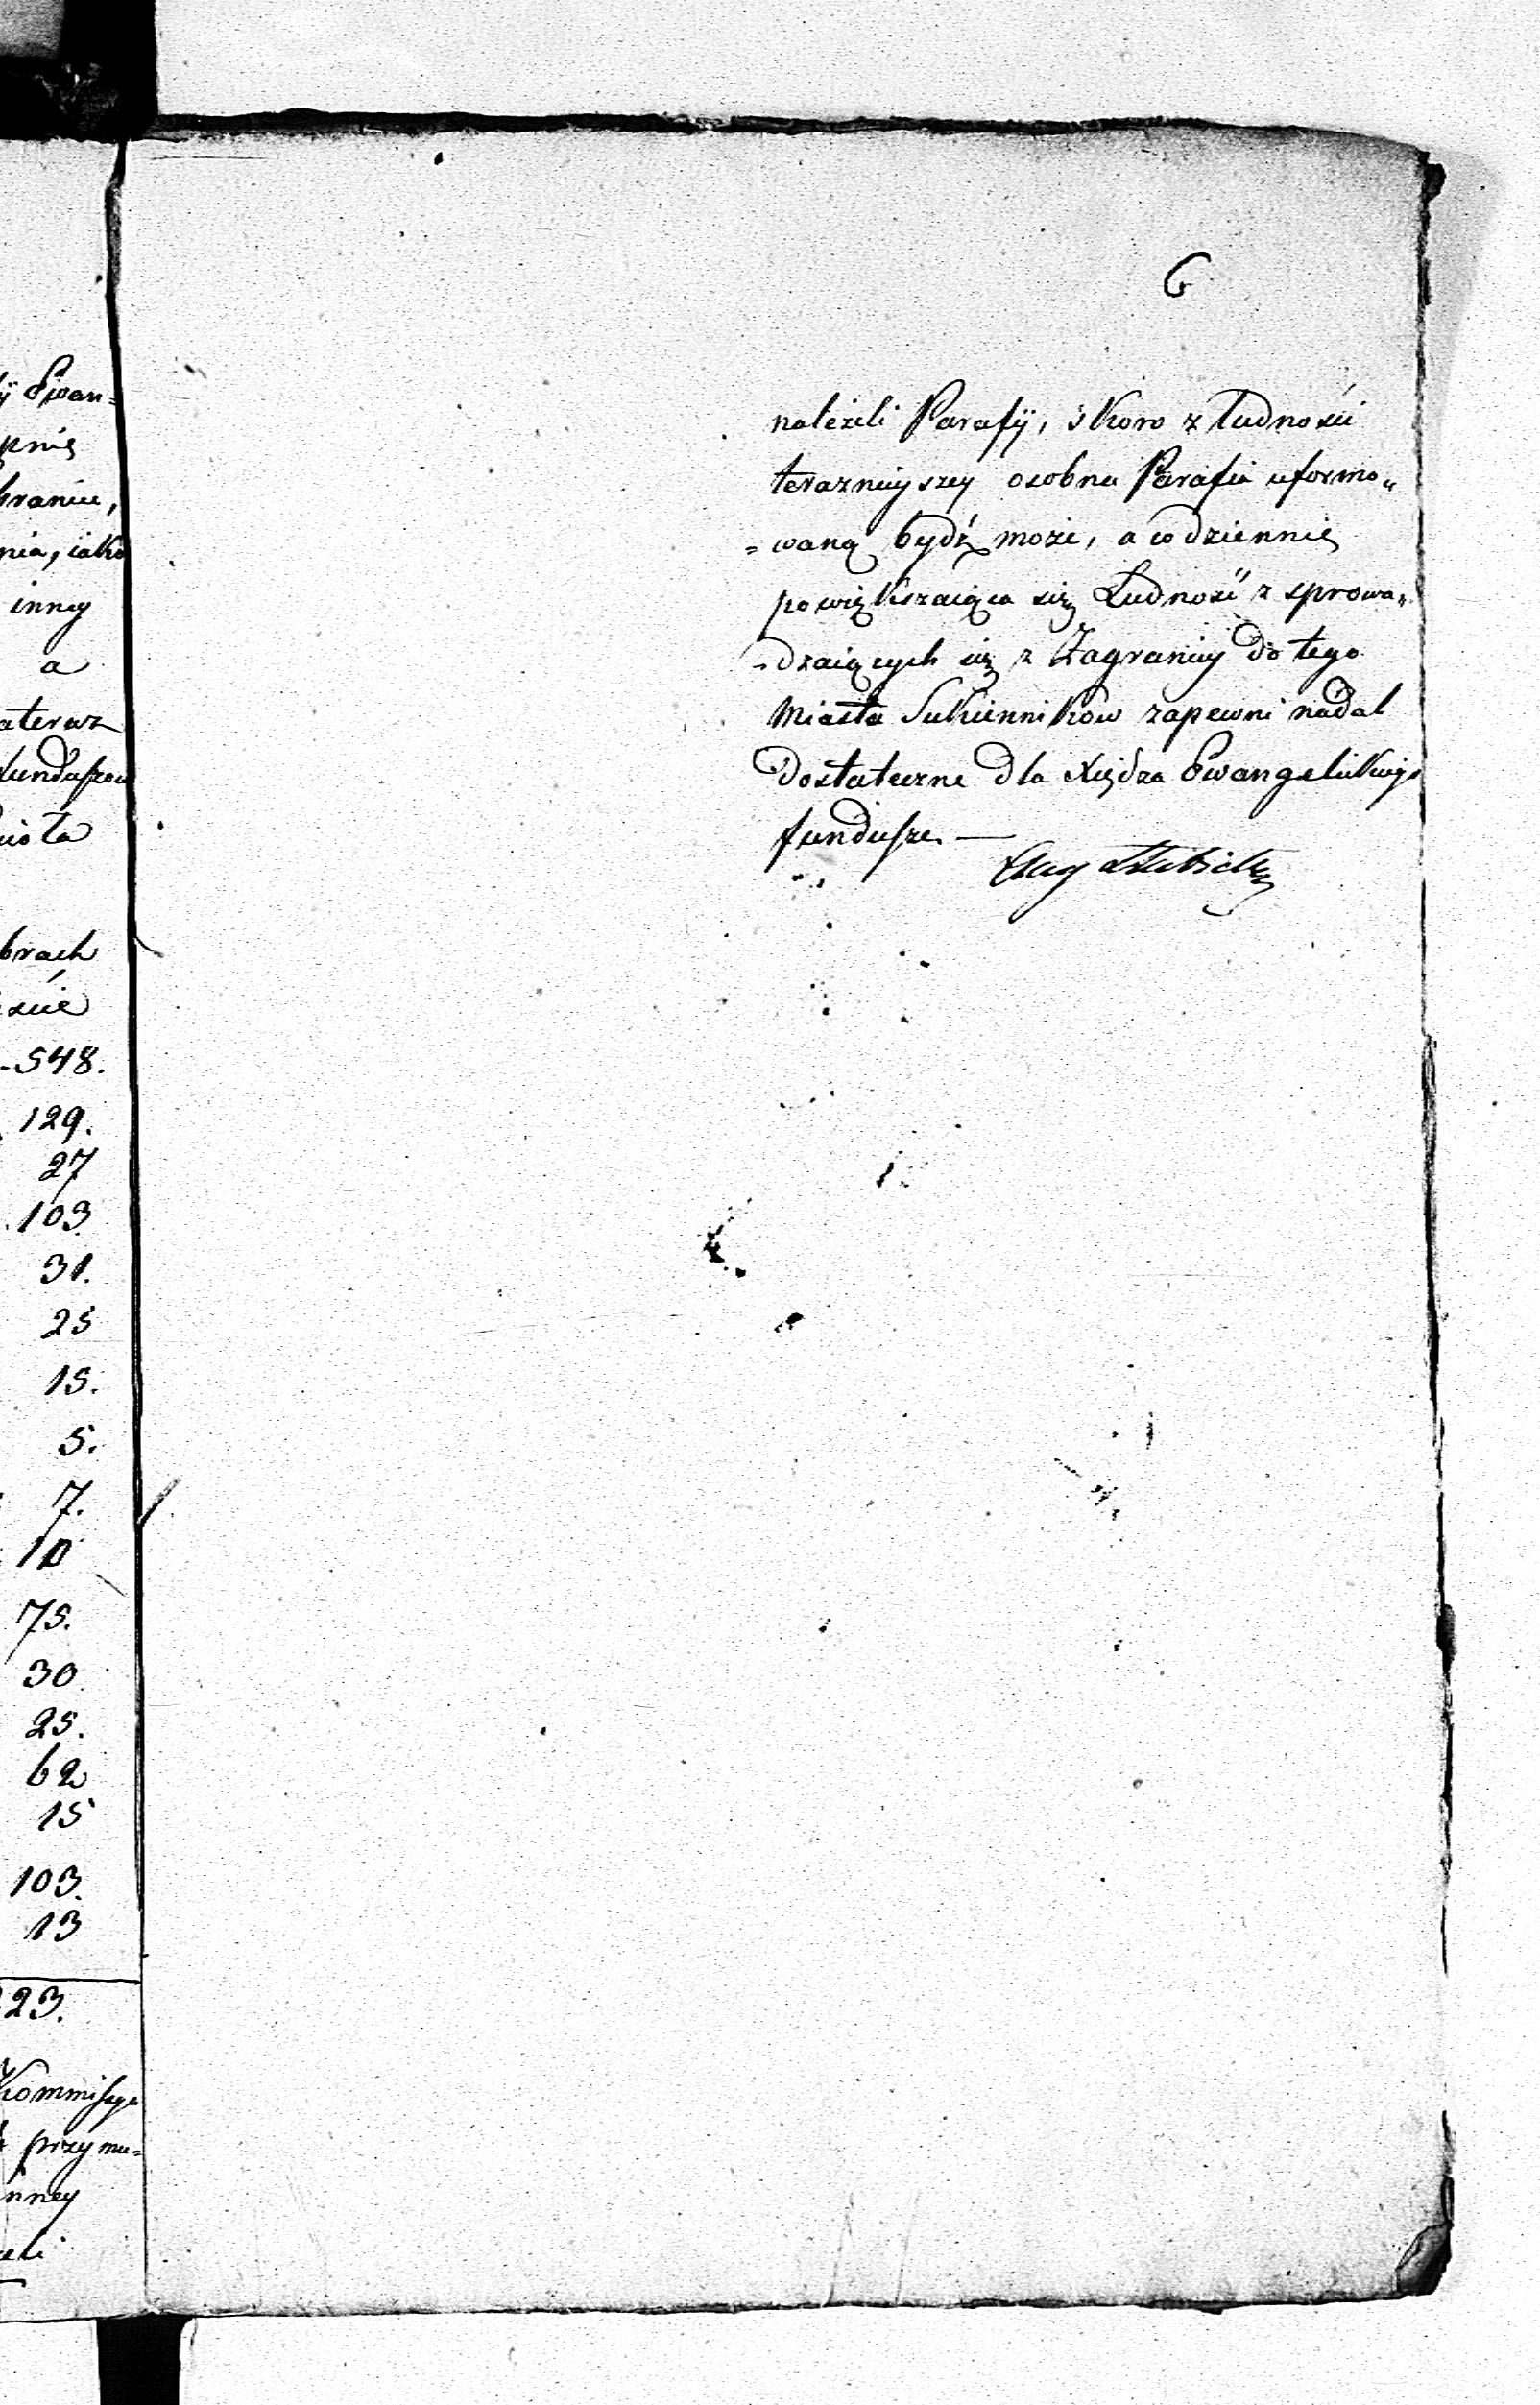 y Ewan=
pnię
braniu,
nia, iako
inney
a
a teraz
Funduszow
brach
548.
129.
27
103.
31.
25
15.
5.
7.
10
75.
30
25.
62
15
103.
13
23.
Kommissya
przymu=
inney
6
należeli Parafij, skoro z ludności
teraznieyszey osobna Parafia uformo„
=waną bydź może, a codziennie
powiększaiąca się Ludność z sprowa„
-dzaiących się z Zagranicy do tego
Miasta Sukienników zapewni nadal
Dostateczne dla Xiędza Ewangelickiego
fundusze. —